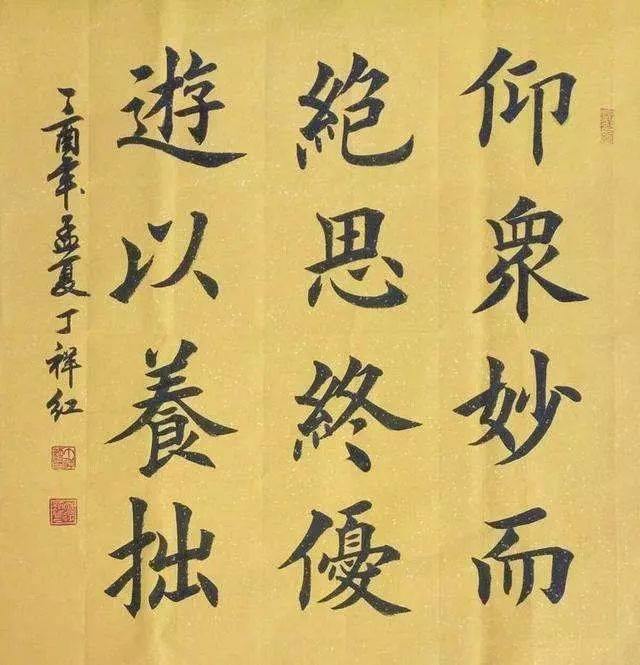 仰衆妙而
絶思終優
遊以養拙
丁酉年孟夏丁祥红